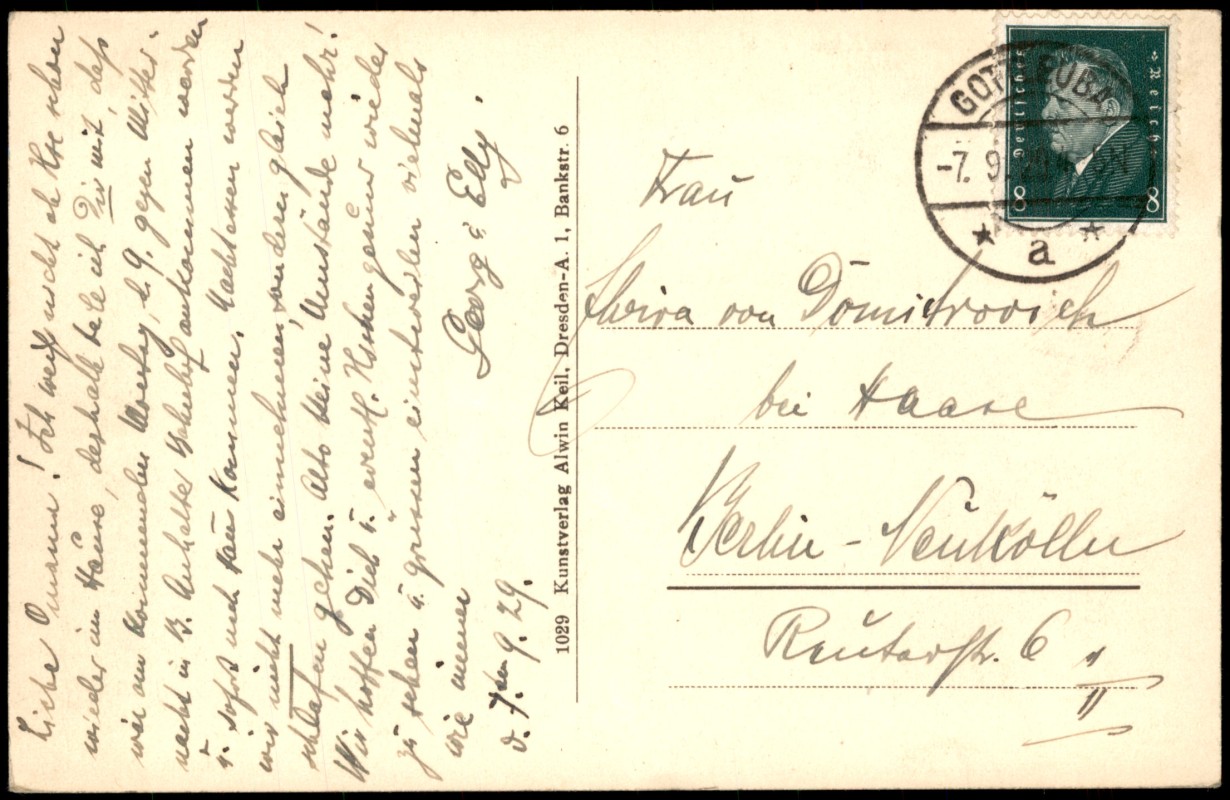 Liebe Omama! Ich weiß nicht ob Ilse schon
wieder im Hause, deshalb teile ich Dir mit, daß
wir am kommenden Montag, d. 9. gegen Mitter-
nacht in B. Anhalter Bahnhof ankommen werden
u. sofort nach Haus kommen. Nachtessen werden
wir nicht mehr einnehmen, sondern gleich
schlafen gehen. Also keine Umstände mehr!
Wir hoffen Dich u. eventl. Ilschen gesund wieder
zu sehen u. grüssen einstweilen vielmals
wie immer
Georg u. Elly.
d. 7ten 9. 29.
1029 Kunstverlag Alwin Keil, Dresden-A. 1, Bankstr. 6
Deutsches Reich
8 8
GOTTLEUBA
-7. 9. 29
a
Frau
von Domitrovich
bei Haase
Berlin - Neukölln
Reuterstr. 6 II